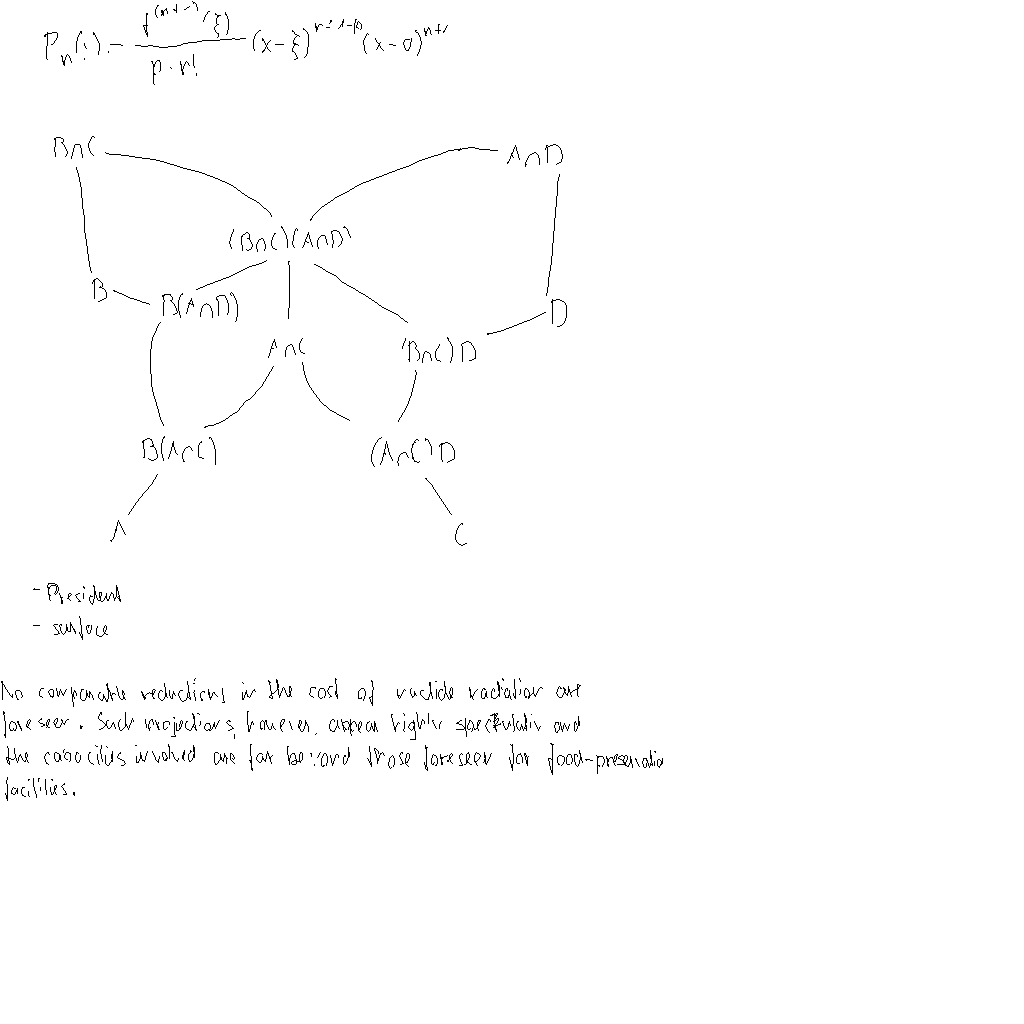 B∩C
A∩D
(B∩C)(A∩D)
B
B(A∩D)
D
A∩C
(B∩C)D
B(A∩C)
(A∩C)D
A
C
- President
- surface
No comparable reductions in the cost of nuclide radiation are
foreseen. Such projections, however, appear highly and
the capacities involved are far beyond those foreseen for food-preservation
facilities.